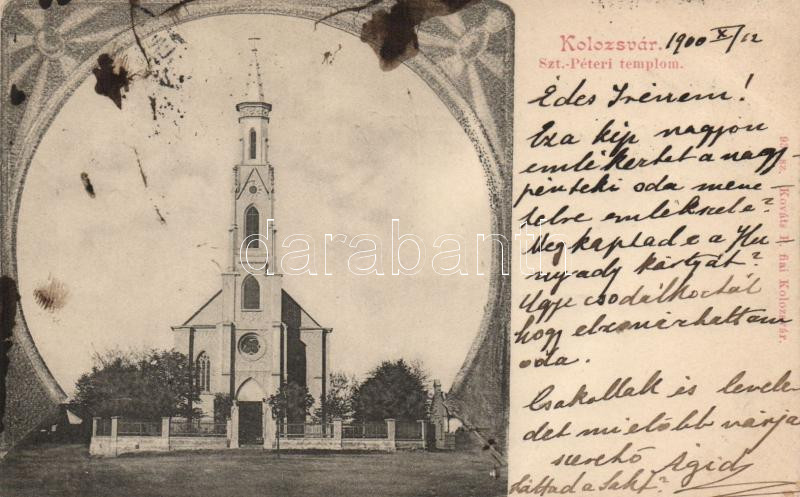 Kolozsvár. 1900 X/12
Szt.-Péteri templom.
Édes Irénem!
Eza kép nagyon
emlékertet a nagy-
pénteki oda mene-
telre emlékszel e?
Megkaptad e a Hu
nyady kártyát?
Ugye csodálkoztál
hogy elzonárhattam
oda.
Csakollak és levele
det mielőbb várja
szerető Egid
Láttad a Sah?
Kováts P. fiai Kolozsvár.
darabanth